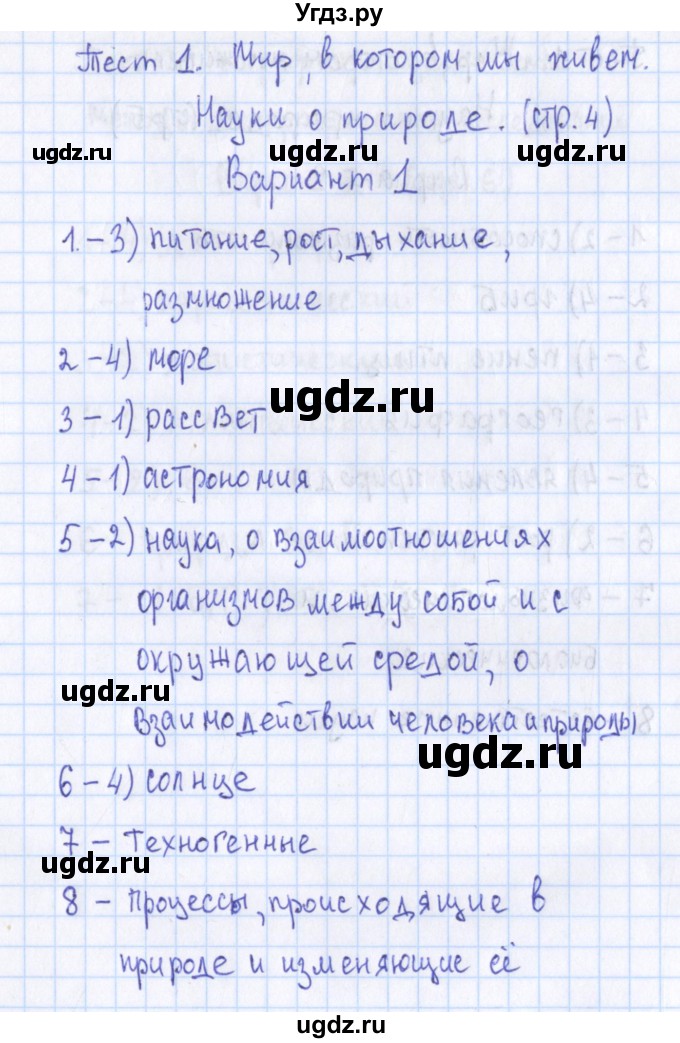 Угдз.ру
Тест 1. Мир, в котором мы живем.
Науки о природе. (стр. 4)
ugdz.ru
ugdz.ru
ugdz.ru
Вариант 1
1. – 3) питание, рост, дыхание,
размножение
2 – 4) море
ugdz.ru
3 – 1) рассвет
4 – 1) астрономия
5 – 2) наука, о взаимоотношениях
организмов между собой и с
окружающей средой, о
ugdz.ru
взаимодействии человека и природы
ugdz.ru
6 – 4) солнце
7 – Техногенные
ugdz.ru
8 – Процессы, происходящие в
природе и изменяющие её
ugdz.ru